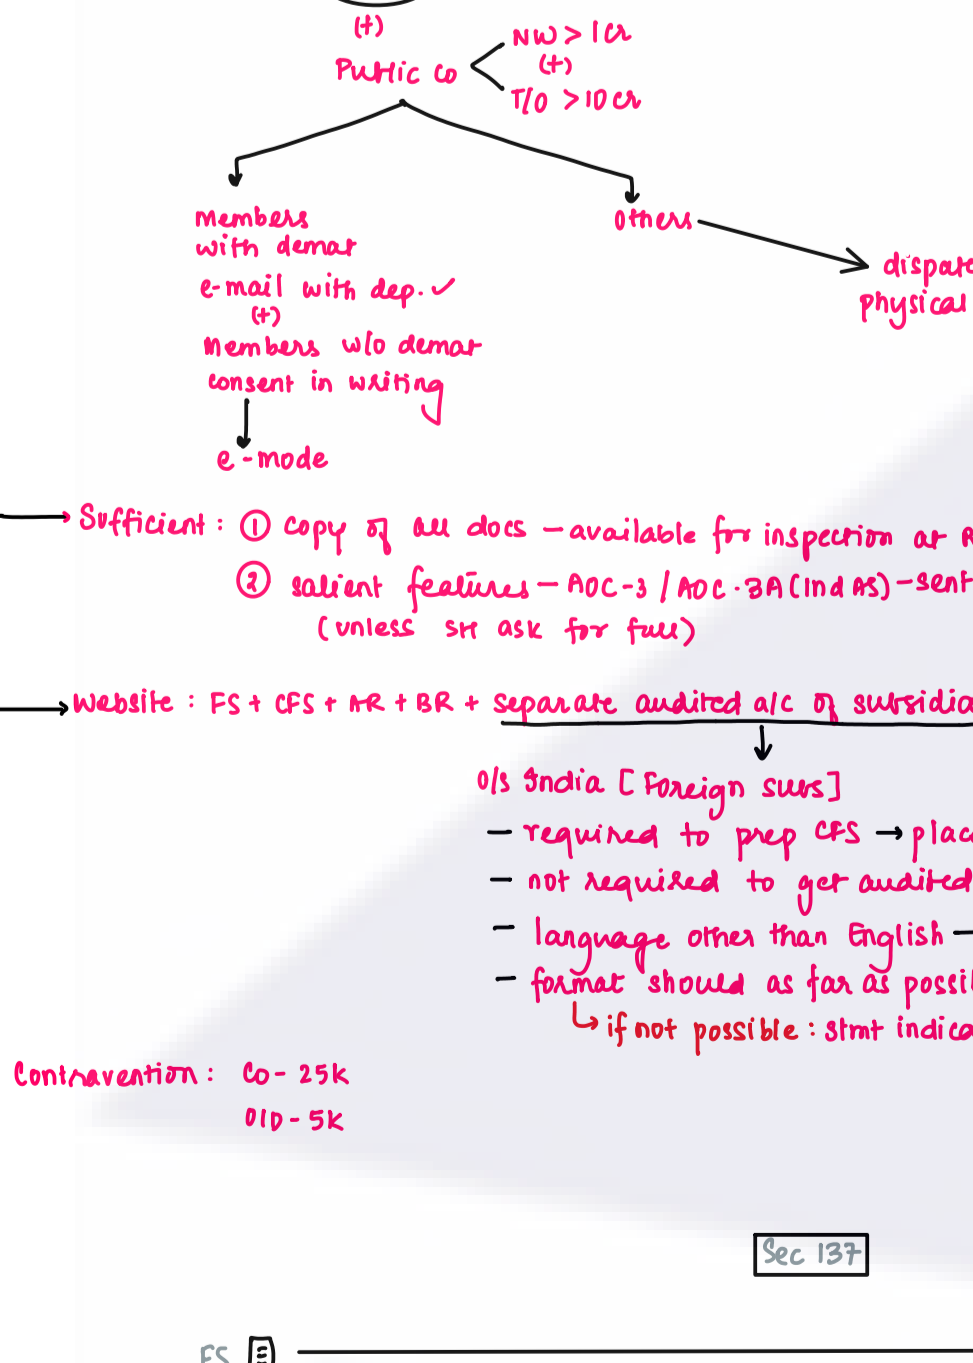 (+)
Public co
NW > 1 cr
(+)
T/O > 10 cr
members
with demat
e-mail with dep. ✓
(+)
members w/o demat
consent in writing
e-mode
others
dispatc
physical
Sufficient : ① copy of all docs – available for inspection at R
② salient features – AOC-3 / AOC-3A (Ind AS) – sent
(unless SH ask for full)
Website : FS + CFS + AR + BR + separate audited a/c of subsidia
O/S India [Foreign subs]
– required to prep CFS → plac
– not required to get audited
– language other than English –
– format should as far as possib
if not possible : stmt indica
Contravention : Co - 25K
OID - 5K
Sec 137
FS